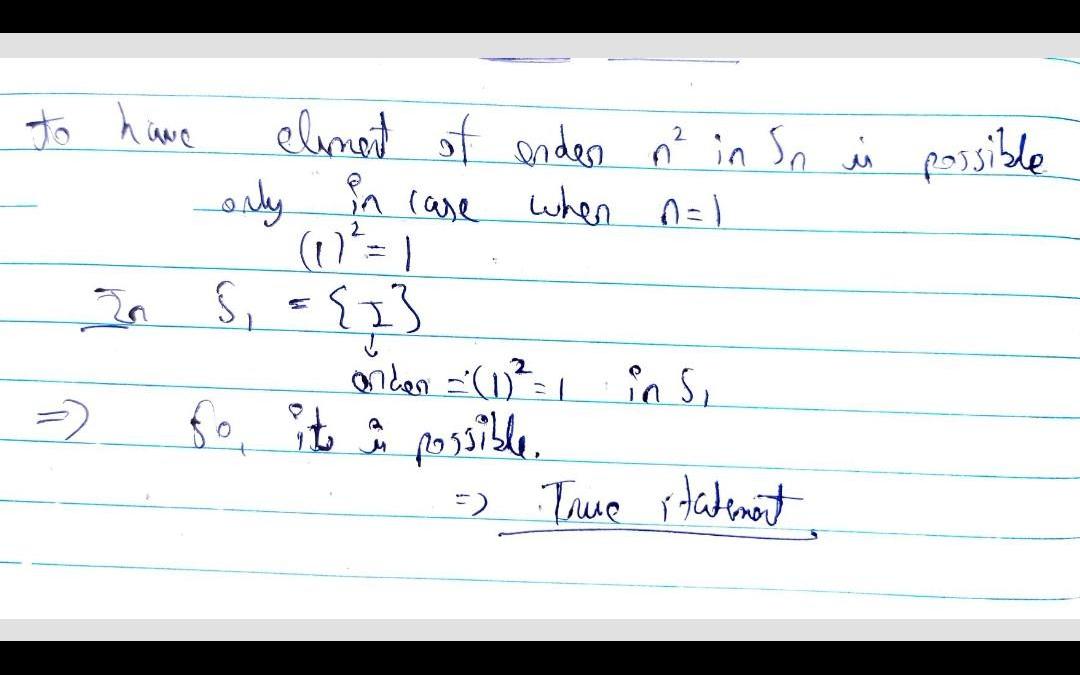 To have element of order n² in Sn is possible
only in case when n=1
(1)² = 1
In S₁ = {I}
↓
order = (1)² = 1 in S₁
=> So, it is possible.
=> True statement.